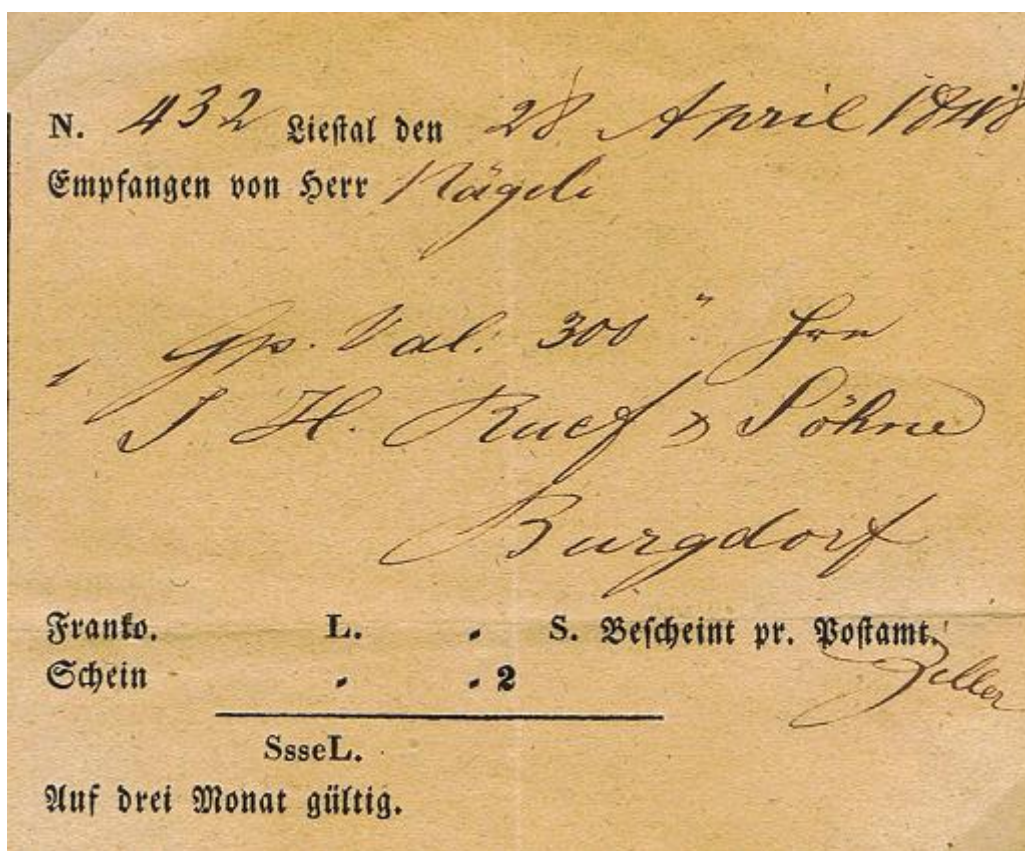 N. 432 Liestal den 28 April 1848
Empfangen von Herr Nägeli
1 Gp. Val: 300 " Hrn
J H. Ruef & Söhne
Burgdorf
Franko. L. . S. Bescheint pr. Postamt.
Schein . . 2 Zeller
SsseL.
Auf drei Monat gültig.